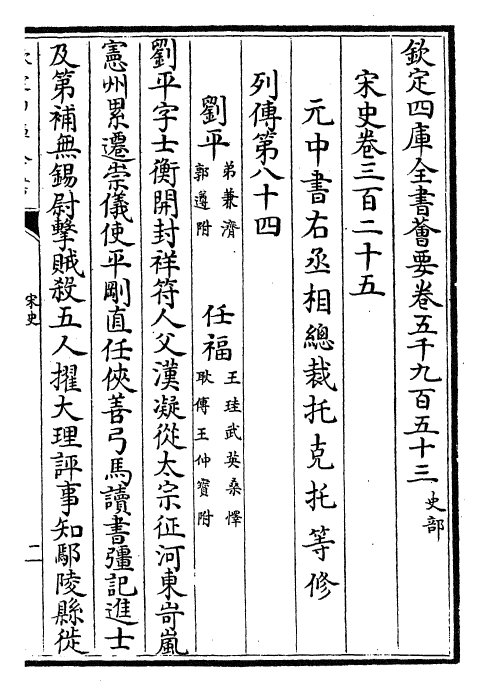 欽定四庫全書薈要卷五千九百五十三 史部
宋史卷三百二十五
元中書右丞相總裁托克托等修
列傳第八十四
劉平 弟兼濟 郭遵附 任福 王珪武英桑懌 耿傅王仲寳附
劉平字士衡開封祥符人父漢凝從太宗征河東岢嵐
憲州累遷崇儀使平剛直任俠善弓馬讀書彊記進士
及第補無錫尉擊賊殺五人擢大理評事知鄢陵縣徙
宋史
二